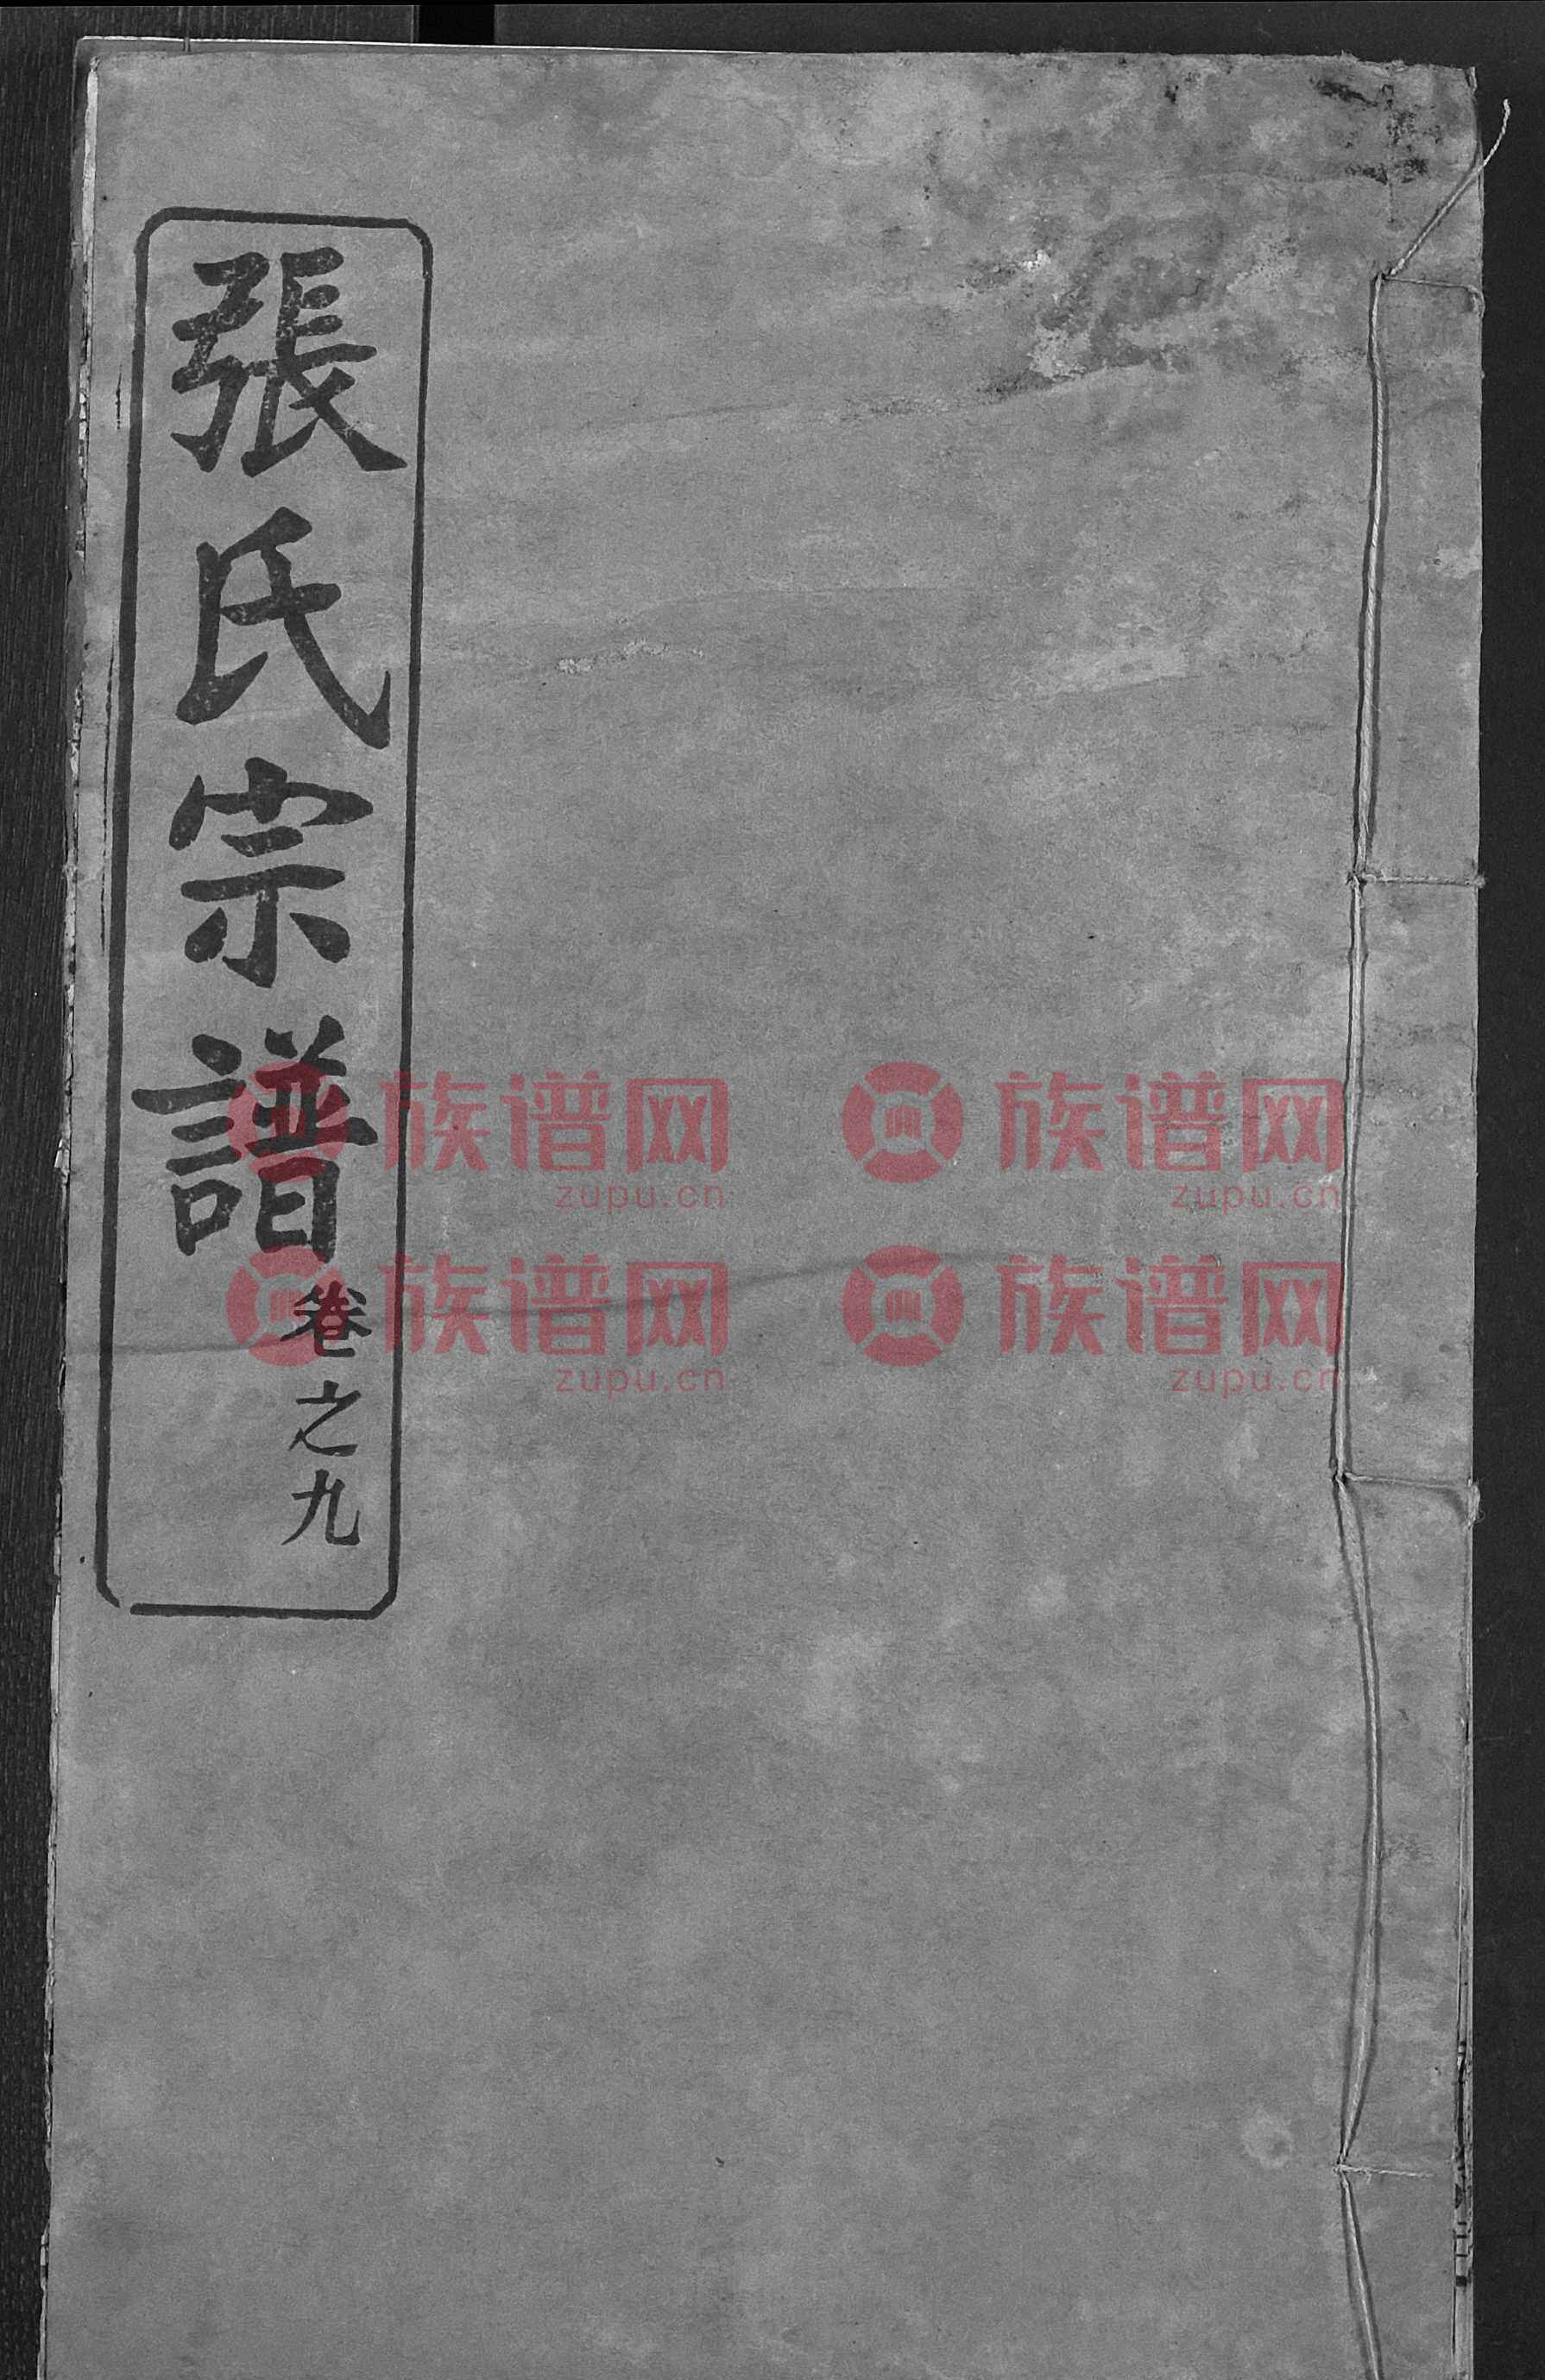 張氏宗譜
卷之九
族谱网 族谱网
zupu.cn zupu.cn
族谱网 族谱网
zupu.cn zupu.cn